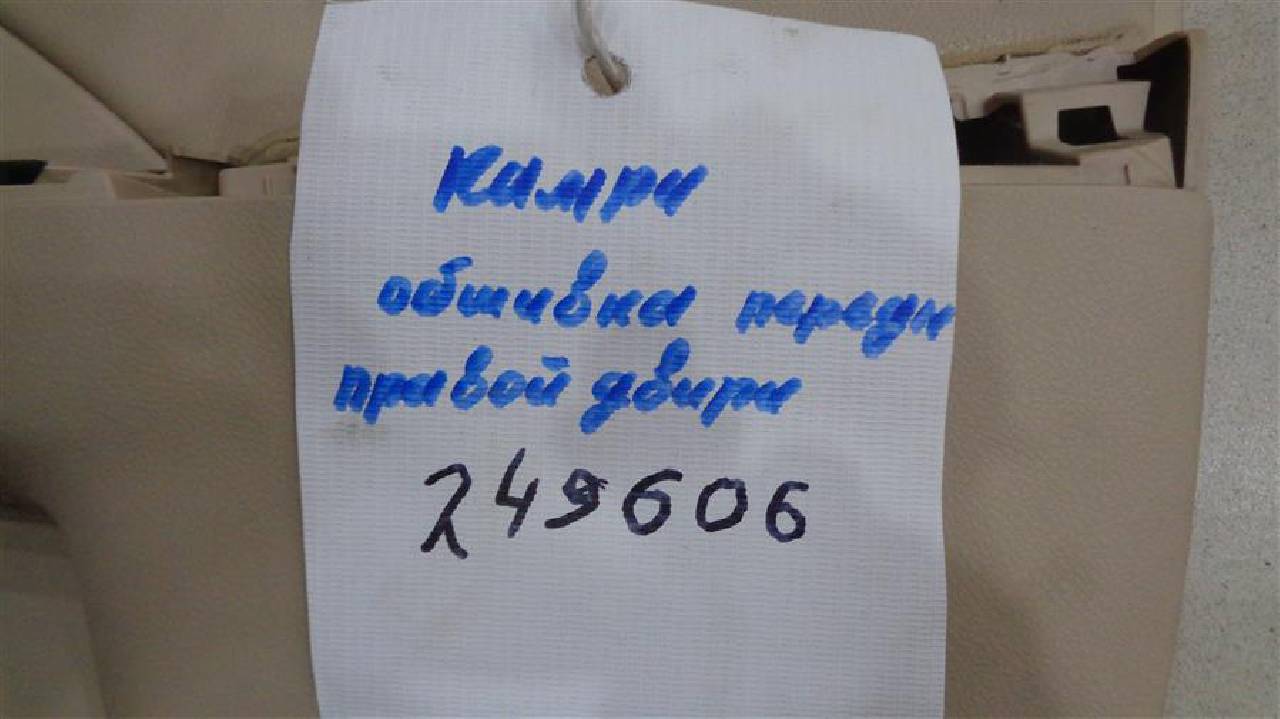 Камри
обшивка передн
правой двири
249606